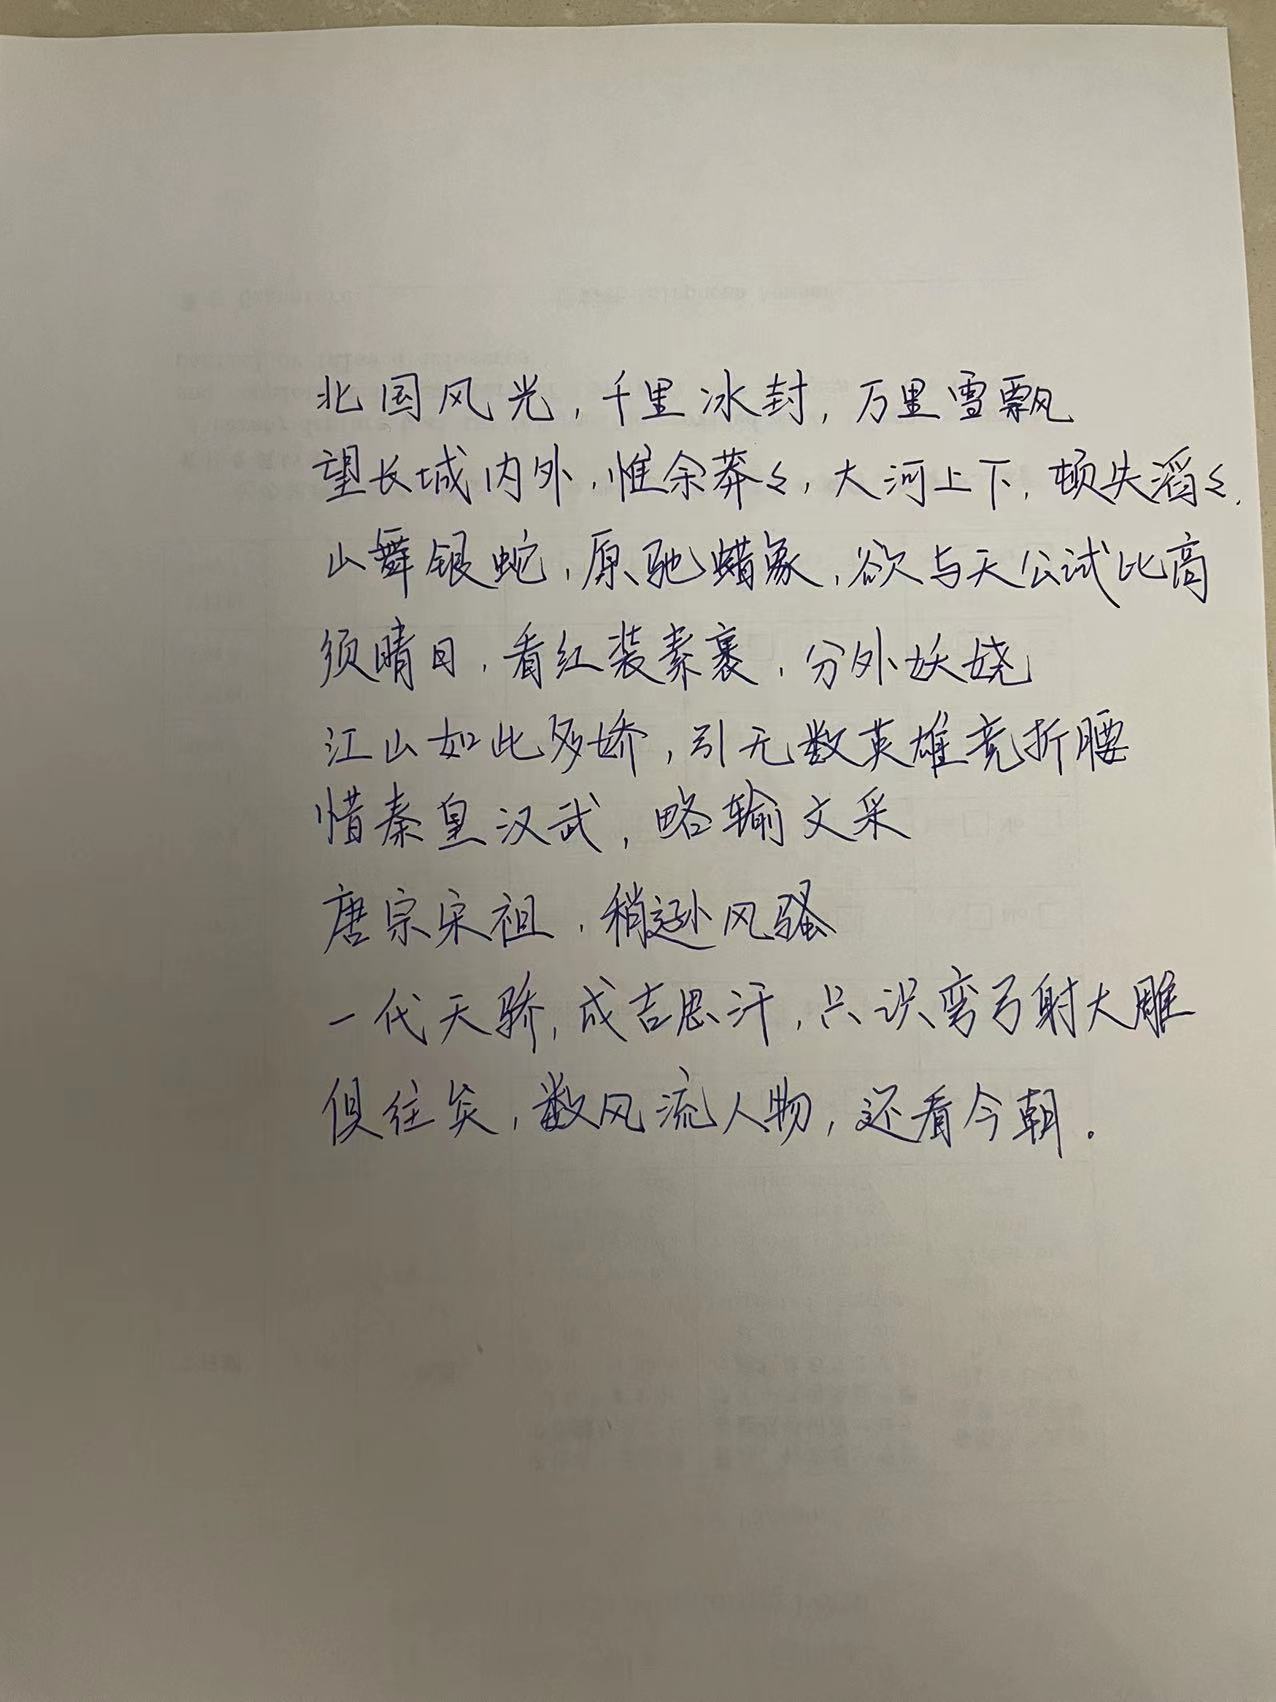 北国风光，千里冰封，万里雪飘
望长城内外，惟余莽々，大河上下，顿失滔々，
山舞银蛇，原驰蜡象，欲与天公试比高
须晴日，看红装素裹，分外妖娆
江山如此多娇，引无数英雄竞折腰
惜秦皇汉武，略输文采
唐宗宋祖，稍逊风骚
一代天骄，成吉思汗，只识弯弓射大雕
俱往矣，数风流人物，还看今朝。